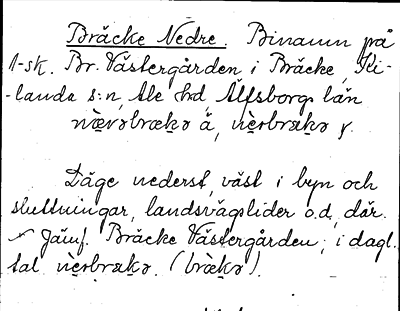 Bräcke Nedre. Binamn på
1-sk. Br. Västergården i Bräcke, Ki-
-landa s:n, Ale hd, Älfsborgs län
nèvəbrækə å, nèrbrækə y.
Läge nederst, väst i byn och
sluttningar, landsvägslider o.d. där.
Jämf. Bräcke Västergården; i dagl.
tal nèrbrækə. (brækə).